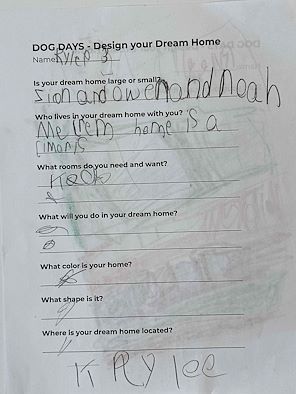 DOG DAYS - Design your Dream Home
Name:
Is your dream home large or small?
Sion and owen and Noah
Who lives in your dream home with you?
Me home is a
What rooms do you need and want?
What will you do in your dream home?
What color is your home?
What shape is it?
Where is your dream home located?
KAylee